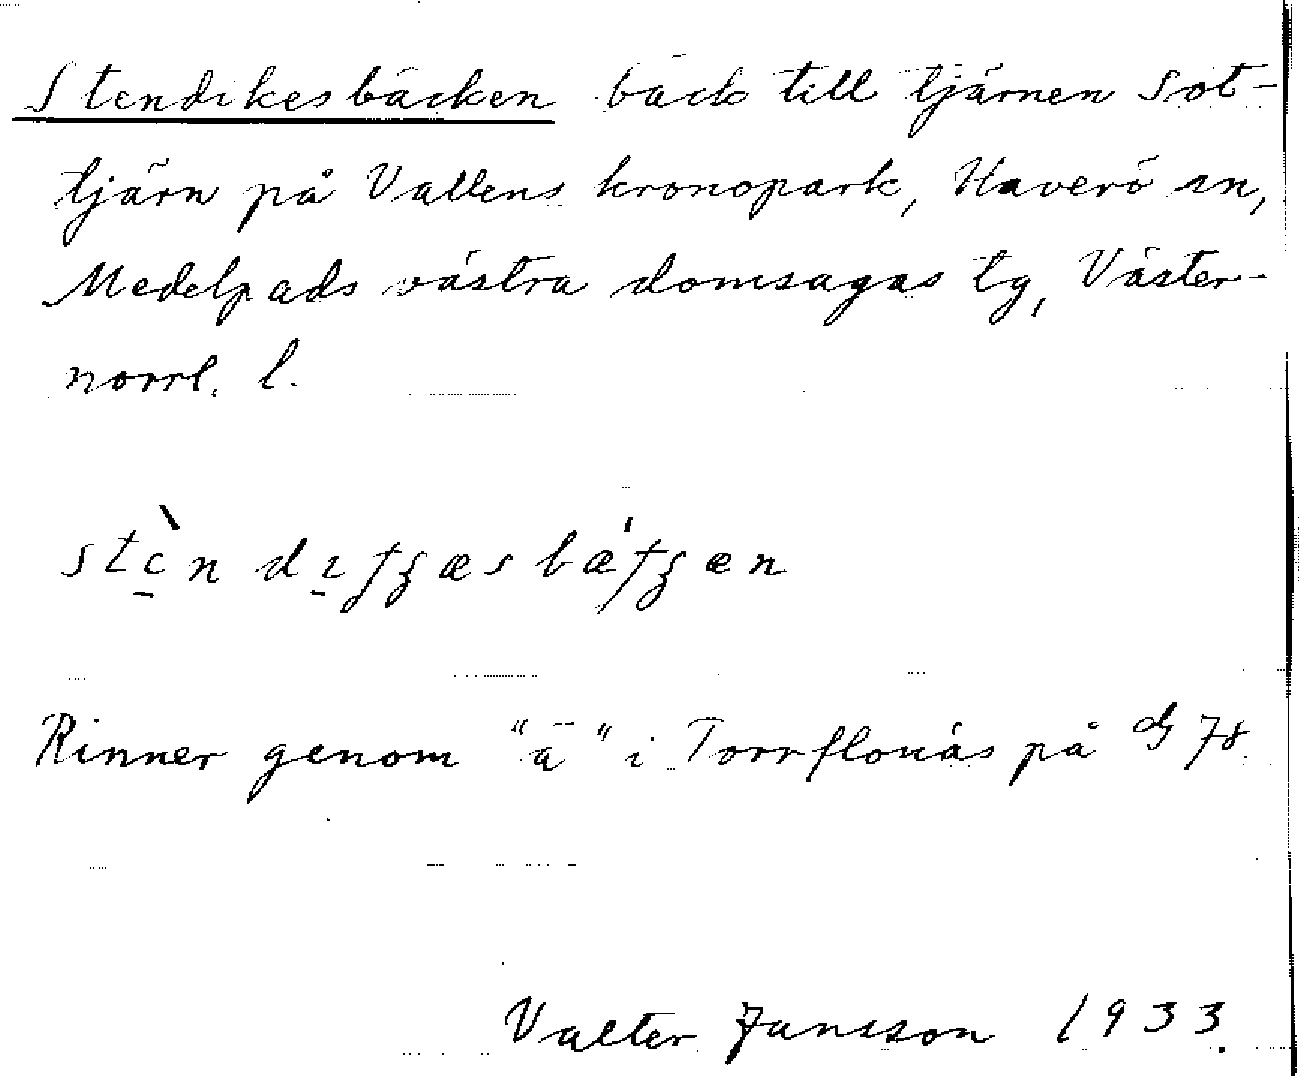 Stendikesbäcken bäck till tjärnen Sot-
tjärn på Vallens kronopark, Haverö sn,
Medelpads västra domsagas tg, Väster-
norrl. l.
Rinner genom "ä" i Torrflonäs på G 78.
Valter Jansson 1933.